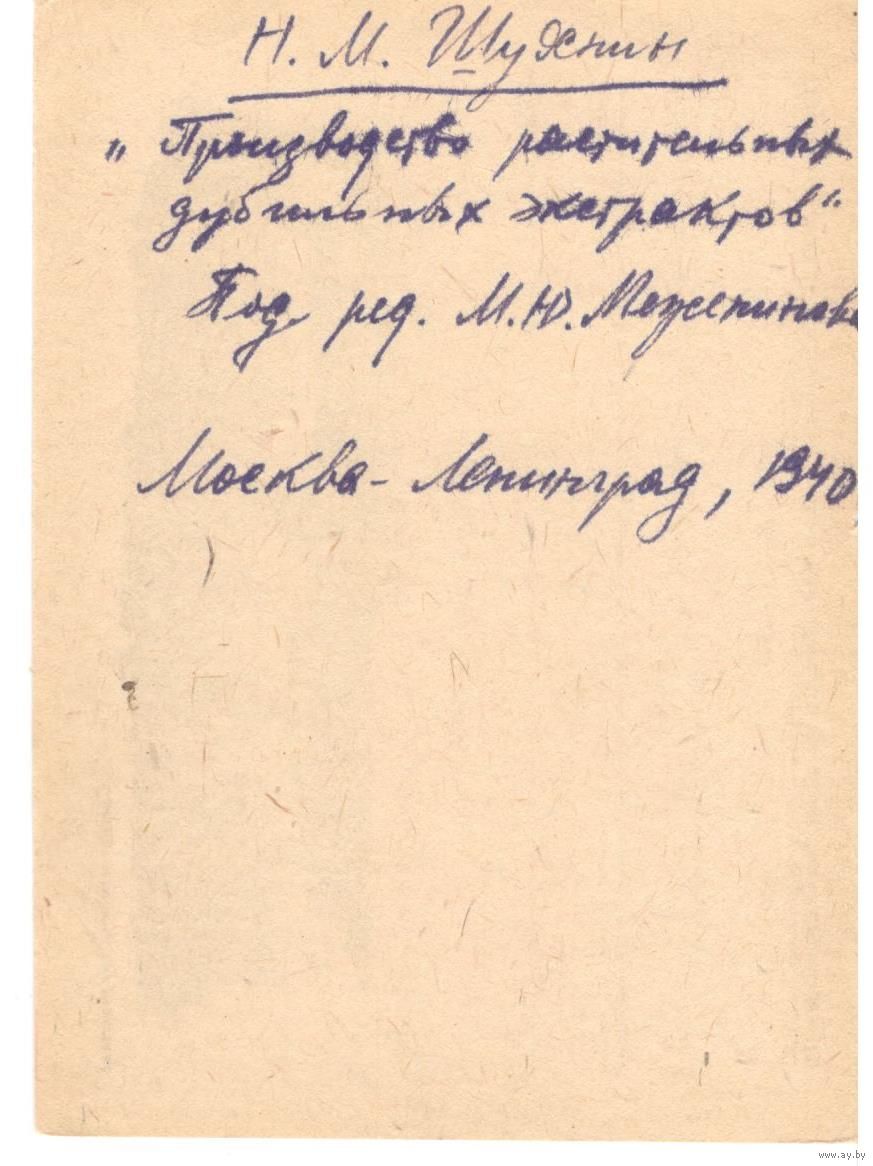 Н. М.
„Производство растительных
дубильных экстрактов“
Под ред. М.Ю.
Москва - Ленинград, 1940
www.ay.by